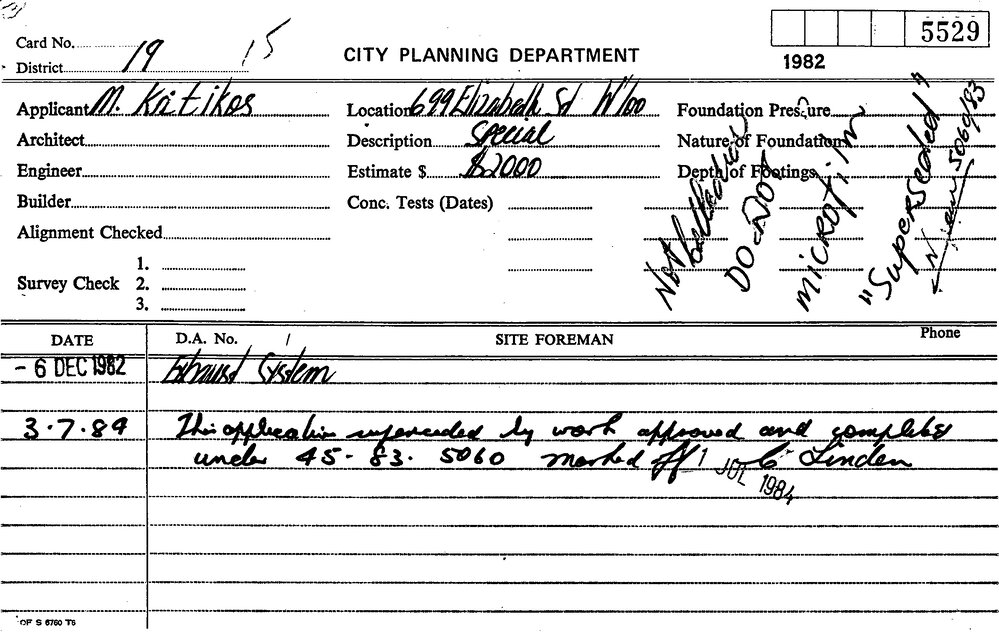 5529
Card No. 15
CITY PLANNING DEPARTMENT
1982
District 19
Applicant M. Katikos
Location 699 Elizabeth St W'loo
Foundation Pressure
Architect
Description Special
Nature of Foundations
Engineer
Estimate $ $2000
Depth of Footings
Builder
Conc. Tests (Dates)
Alignment Checked
Survey Check
1.
2.
3.
Not
DO-NOT
microfilm
"Superseded"
5060/83
DATE
D.A. No. /
SITE FOREMAN
Phone
- 6 DEC 1982
Exhaust System
3.7.84
This application superceded by work approved and completed
under 45-83-5060 marked off C Linden
1 JUL 1984
OF S 6760 T6